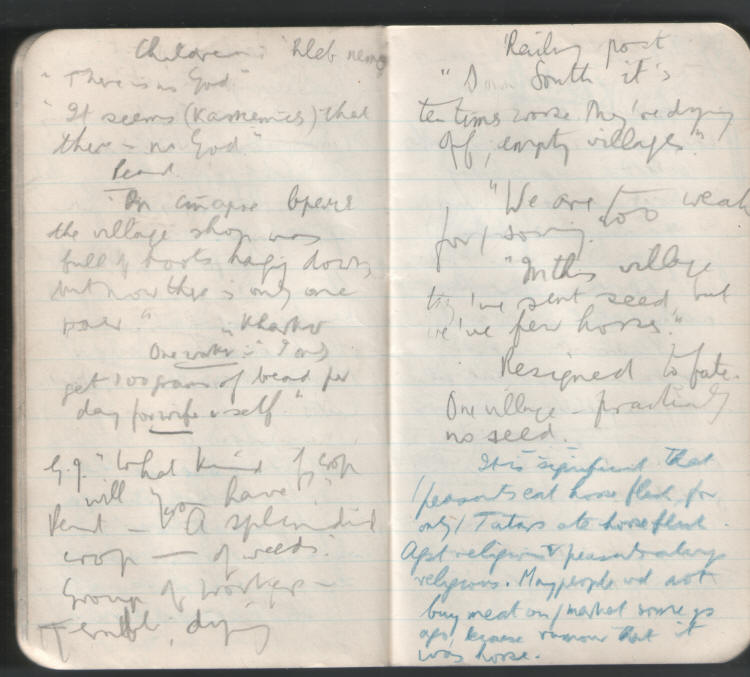 Children: "Hleb nema
"There is no God"
"It seems (Kameniev) that
there – no God."
Peasant.
the village shop was
full of boots hanging down,
but now there is only one
pair." Kharkov
One worker :– "I only
get 100 grams of bread per
day for wife & self."
G.J. "What kind of crop
will you have?"
Peasant – "A splendid
crop — of weeds."
Group of workers –
Terrible, dying
Railway post
"Down South it's
ten times worse. They're dying
off; empty villages."
"We are too weak
for / sowing.
"In this village
they've sent seed, but
we've few horses."
Resigned to fate.
One village – practically
no seed.
It is significant that
/ peasants eat horse flesh for
only / Tatars ate horseflesh.
Agst religion & peasants always
religious. Many people wd not
buy meat on / market some yrs
ago, because rumour that it
was horse.